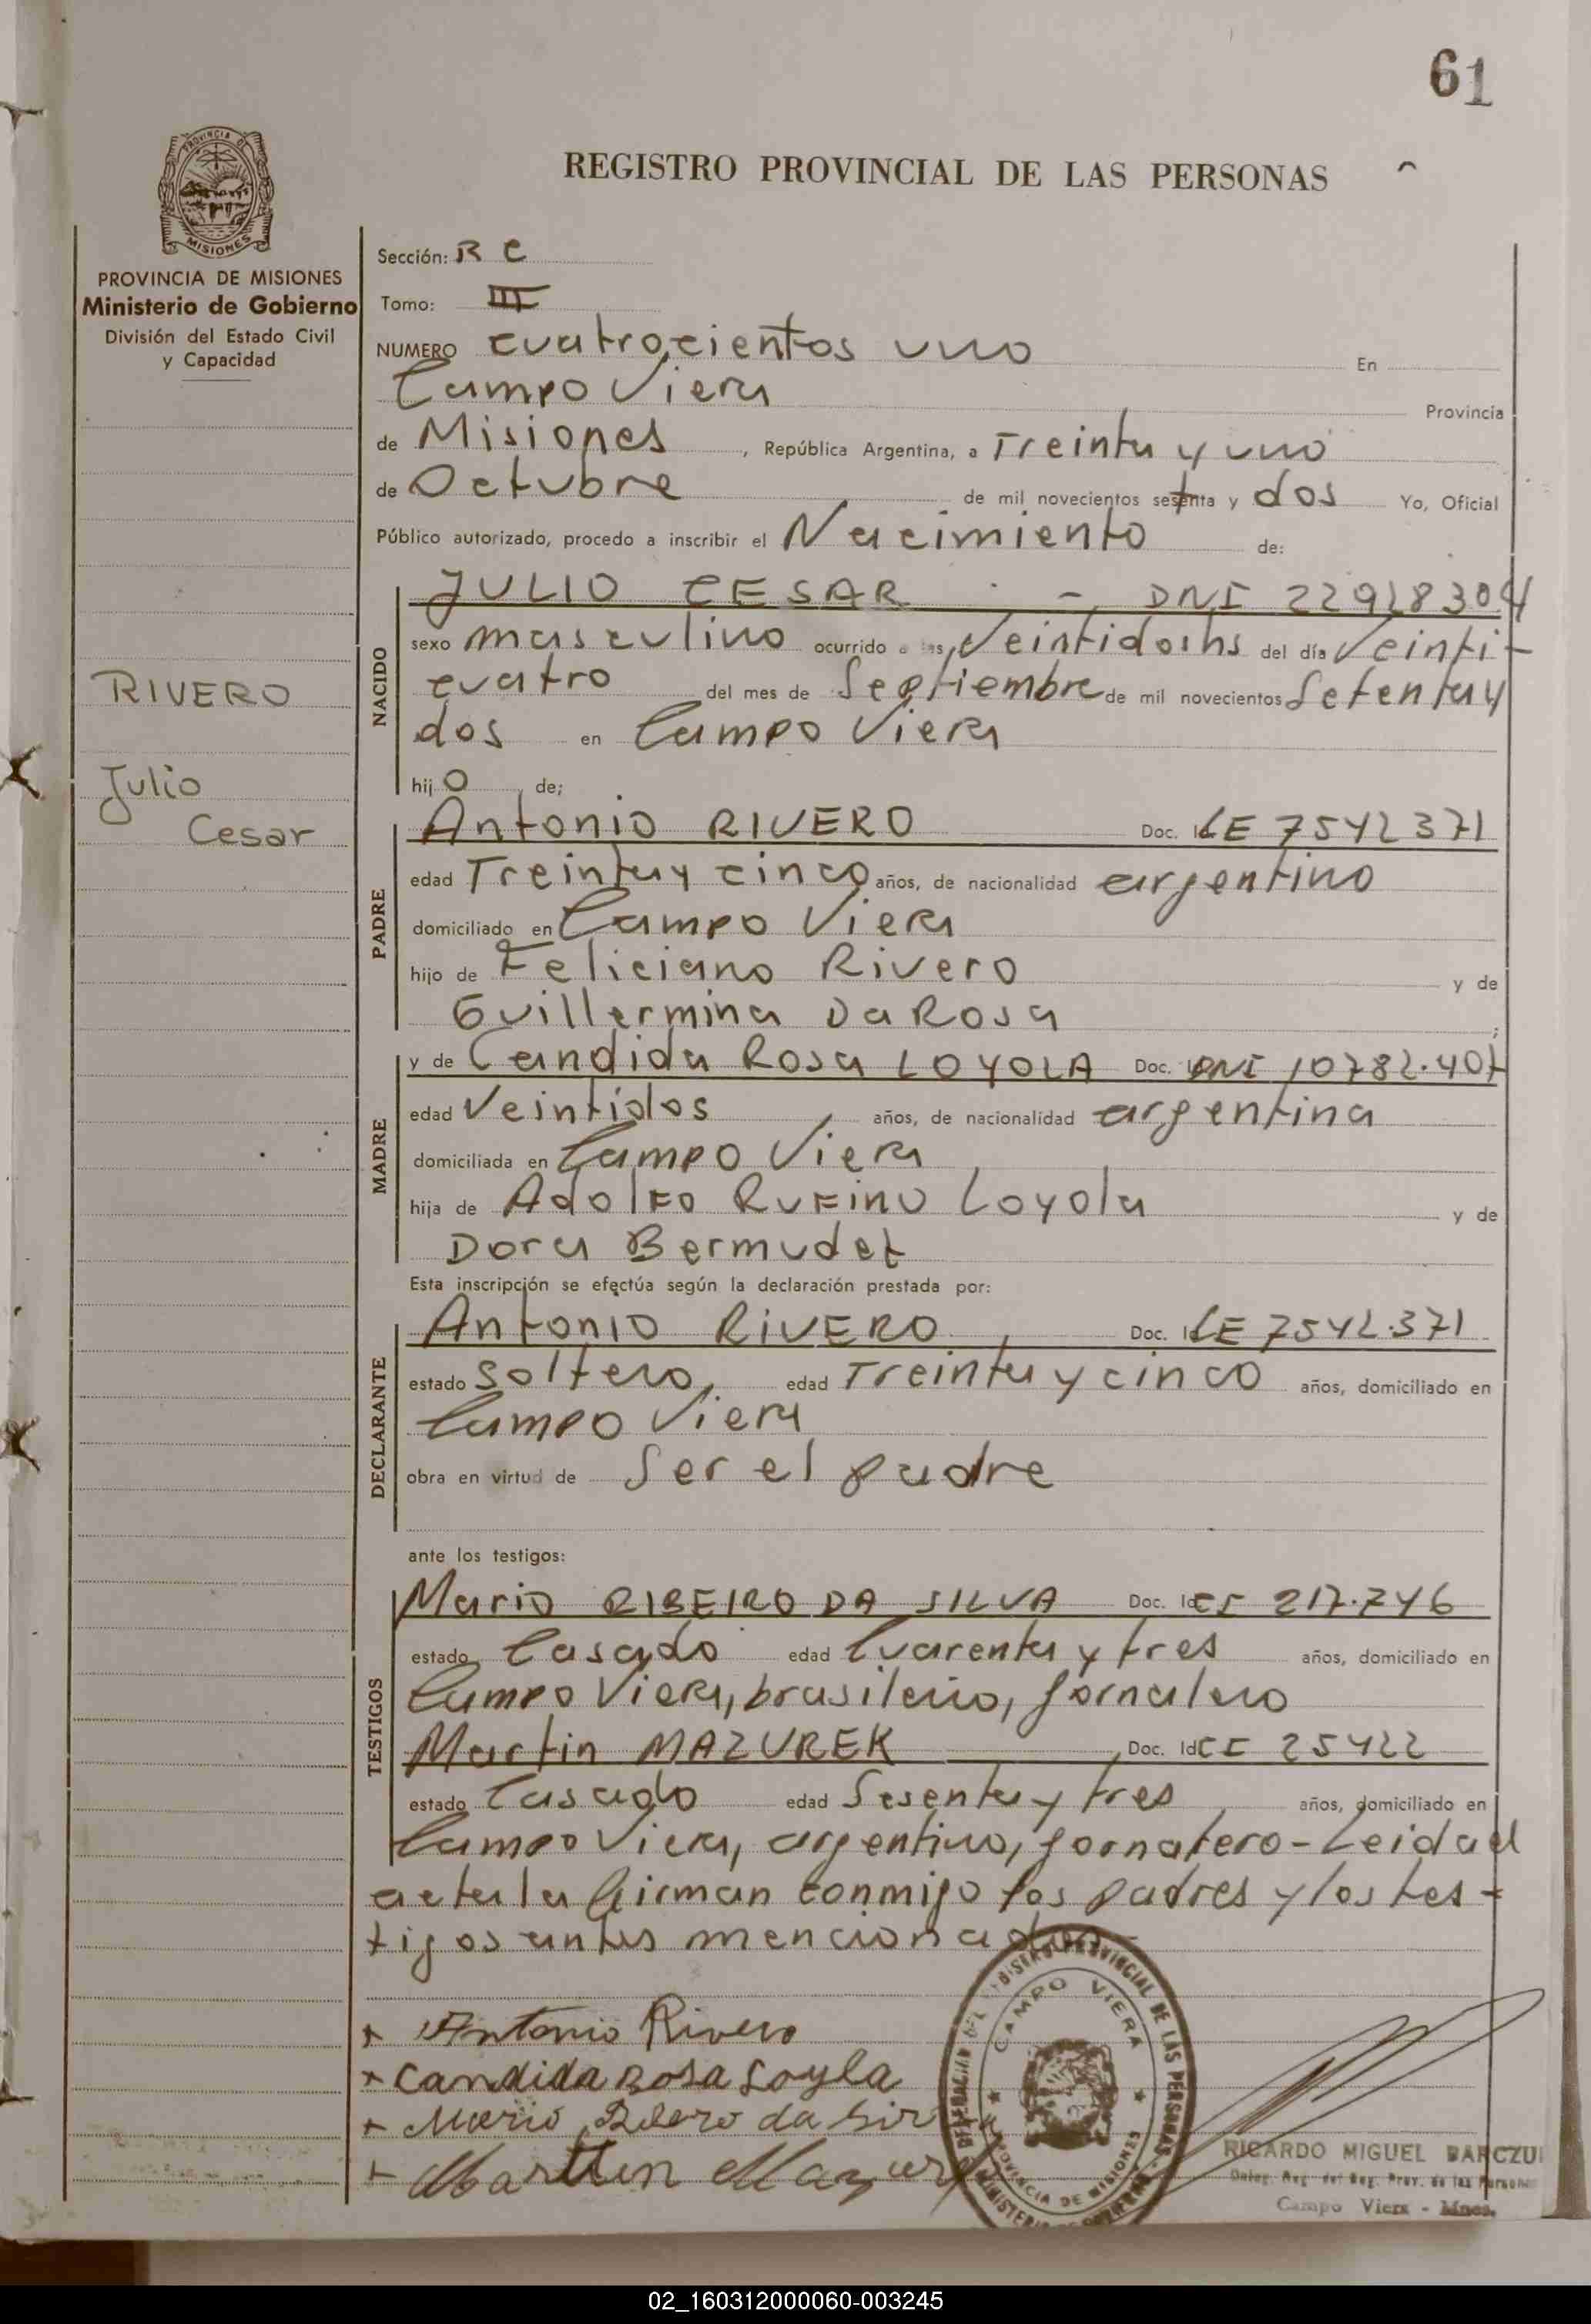 61
REGISTRO PROVINCIAL DE LAS PERSONAS
PROVINCIA DE MISIONES
Ministerio de Gobierno
División del Estado Civil
y Capacidad
RIVERO
Julio
Cesar
Sección: R C
Tomo: III
NUMERO cuatrocientos uno En
Campo Viera Provincia
de Misiones, República Argentina, a Treinta y uno
de Octubre de mil novecientos setenta y dos Yo, Oficial
Público autorizado, procedo a inscribir el Nacimiento de:
NACIDO
JULIO CESAR - DNI 22928304
sexo masculino ocurrido a las Veintidoshs del día Veinti-
cuatro del mes de Septiembre de mil novecientos Setenta y
dos en Campo Viera
hijo de;
PADRE
Antonio RIVERO Doc. LE 7542371
edad Treinta y cinco años, de nacionalidad argentino
domiciliado en Campo Viera
hijo de Feliciano Rivero y de
Guillermina Da Rosa ;
MADRE
y de Candida Rosa LOYOLA Doc. DNI 10782.407
edad Veintidos, años, de nacionalidad argentina
domiciliada en Campo Viera
hija de Adolfo Rufino Loyola y de
Dora Bermudez
Esta inscripción se efectúa según la declaración prestada por:
DECLARANTE
Antonio RIVERO, Doc. LE 7542.371
estado Soltero, edad Treinta y cinco años, domiciliado en
Campo Viera
obra en virtud de Ser el padre
ante los testigos:
TESTIGOS
Mario RIBEIRO DA SILVA Doc. Id CI 217.746
estado Casado edad Cuarenta y tres años, domiciliado en
Campo Viera, brasileño, jornalero
Martin MAZUREK, Doc. Id CI 25422
estado Casado edad Sesenta y tres años, domiciliado en
Campo Viera, argentino, jornalero - Leida el
acta la firman conmigo los padres y los tes-
tigos antes mencionados-
Antonio Rivero
Candida Rosa Loyla
Mario Ribero da
Martin
DELEGACION DEL REGISTRO PROVINCIAL DE LAS PERSONAS
CAMPO VIERA
PROVINCIA DE MISIONES
RICARDO MIGUEL BARCZU
Deleg. Reg. del Reg. Prov. de las Personas
Campo Viera - Mnes.
02_160312000060-003245